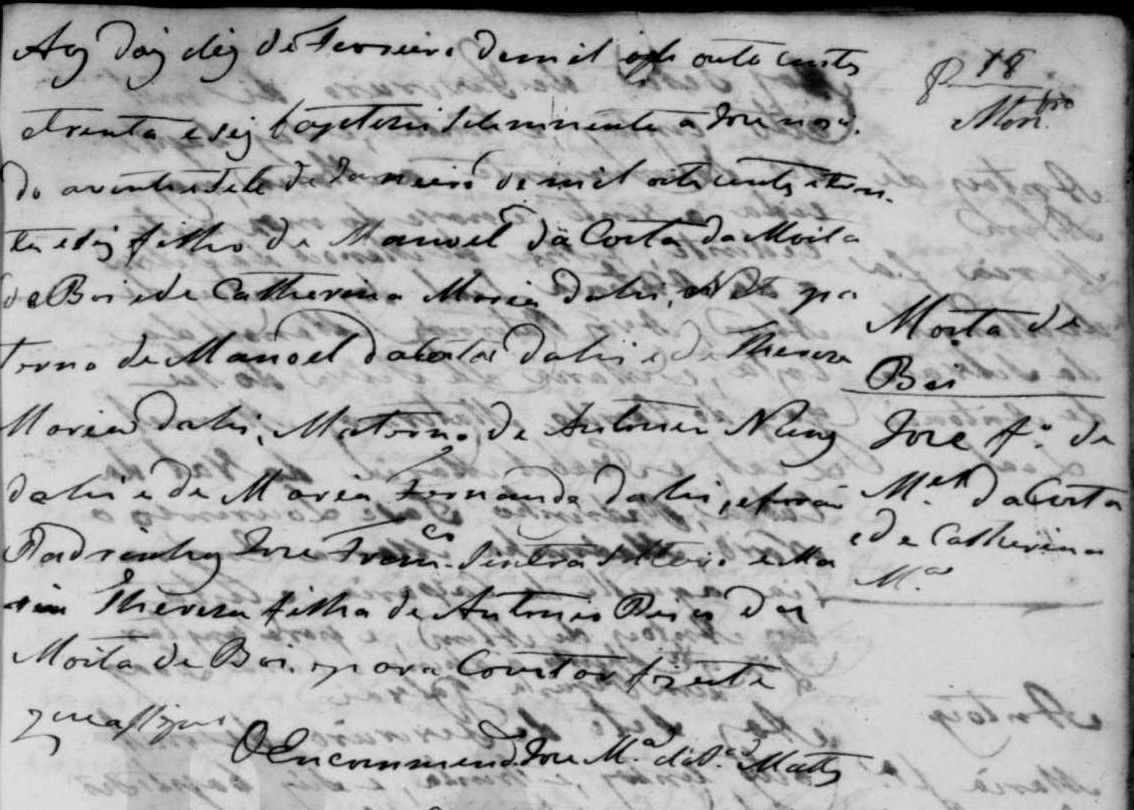 Aos dois dias de Fevereiro de mil oito centos
e trinta e seis baptizei solemnemente a Jose nasci
do aos vinte e sete de Janeiro de mil oito centos e trin
ta e seis filho de Manoel da Costa da Moita
do Boi e de Catherina Maria dahi, Neto pa
terno de Manoel da Costa dahi e de Thereza
Maria dahi, Materno de Antonio Nunes
dahi e de Maria Fernanda dahi, e forão
Padrinhos Jose Fran.co solteiro e Ma
ria Thereza filha de Antonio Pires da
Moita do Boi. e para Constar fiz este
que assignei
O Encommend.do Jose M.a de Mattos
18
Moita do
Boi
Jose f.o de
M.el da Costa
e de Catherina
M.a